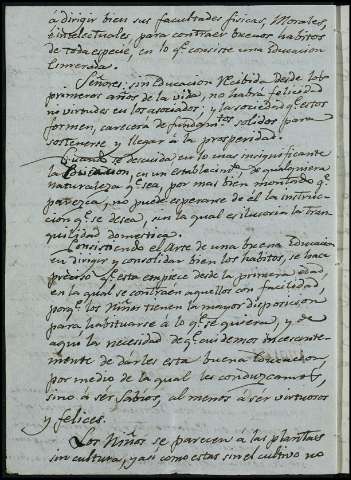 á dirigir bien sus facultades fisicas, Morales,
é intelectuales, para contraer buenos habitos
de toda especie, en lo q.e consiste una Educacion
Esmerada.
Señores: sin Educacion Recibida desde los
primeros años de la vida, no habrá felicidad
ni virtudes en los asociados; y la sociedad q.e estos
formen, carecerá de fundam.tos solidos para
sostenerse y llegar á la prosperidad.
Cuando se descuida en lo mas insignificante
la Educacion, en un establecim.to de qualquiera
naturaleza q.e sea, por mas bien montado q.e
parezca, no puede esperarse de él la instruc-
cion q.e se desea, sin la qual es ilusoria la tran-
quilidad domestica.
Consistiendo el Arte de una buena Educacion
en dirigir y consolidar bien los habitos, se hace
preciso q.e esta empiece desde la primera edad,
en la qual se contraen aquellos con facilidad,
porq.e los Niños tienen la mayor disposicion
para habituarse á lo q.e se quiera, y de
aqui la necesidad de q.e cuidemos incesante-
mente de darles esta buena Educacion,
por medio de la qual les conduzcamos,
sino á ser sabios, al menos á ser virtuosos
y felices.
Los Niños se parecen á las plantas
sin cultura, y asi como estas sin el cultivo no